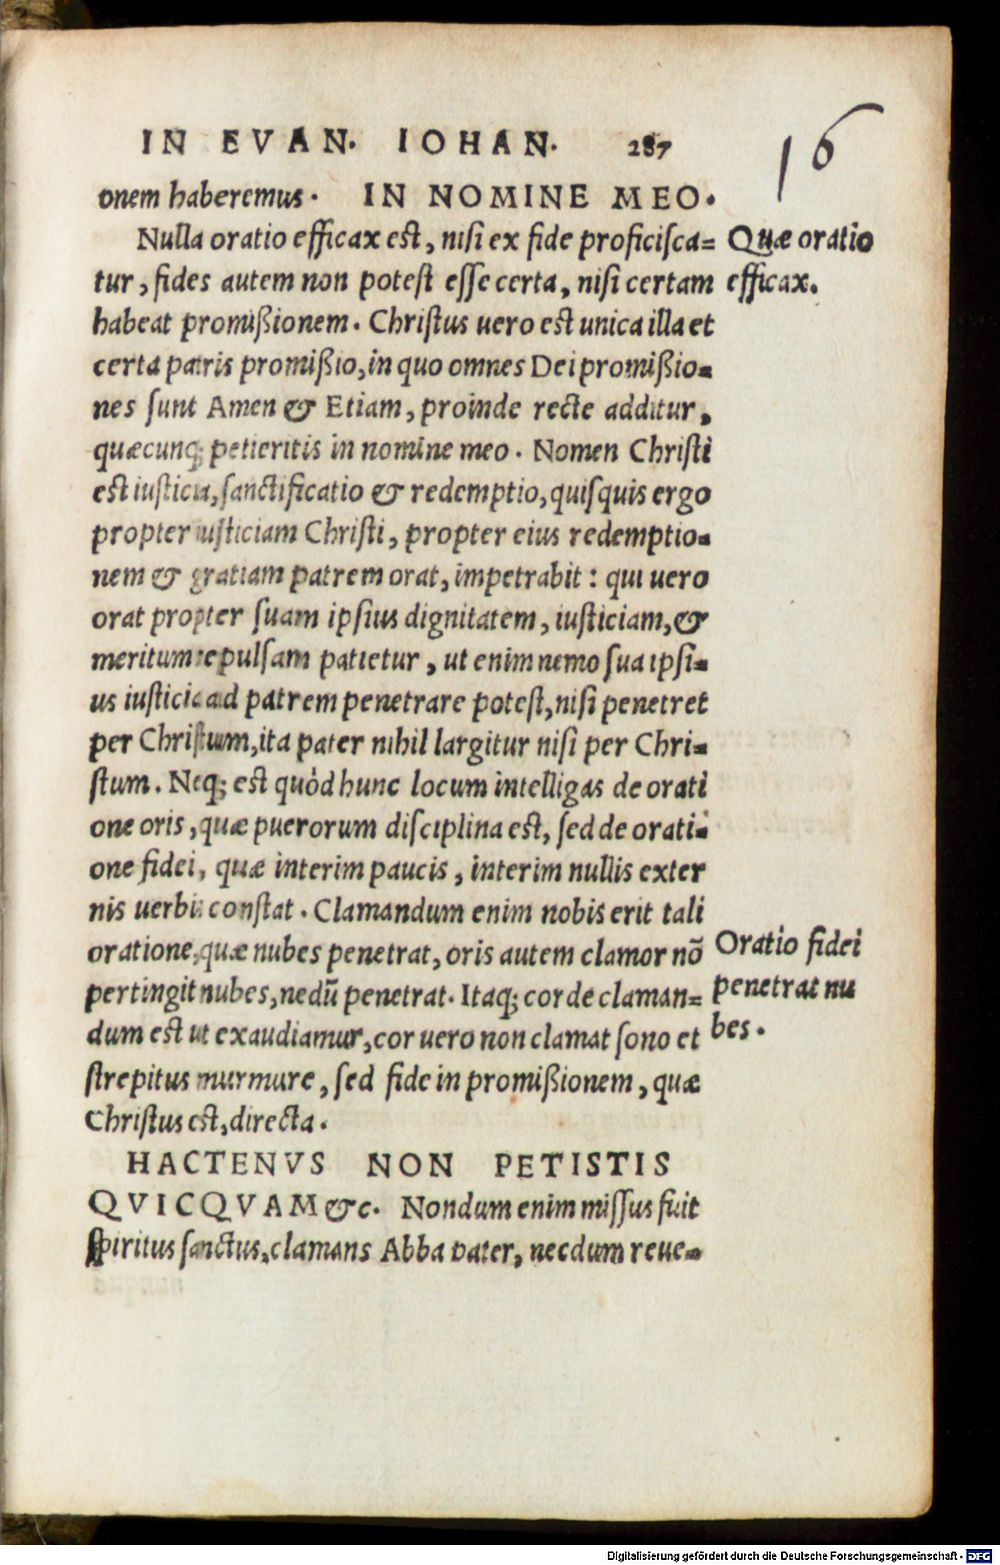 IN EVAN. IOHAN. 287
16
onem haberemus. IN NOMINE MEO.
Nulla oratio efficax est, nisi ex fide proficisca=
Quæ oratio
tur, fides autem non potest esse certa, nisi certam
efficax.
habeat promißionem. Christus uero est unica illa et
certa patris promißio, in quo omnes Dei promißio-
nes sunt Amen & Etiam, proinde recte additur,
quæcunq; petieritis in nomine meo. Nomen Christi
est iusticia, sanctificatio & redemptio, quisquis ergo
propter iusticiam Christi, propter eius redemptio-
nem & gratiam patrem orat, impetrabit: qui uero
orat propter suam ipsius dignitatem, iusticiam, &
meritum repulsam patietur, ut enim nemo sua ipsi-
us iusticia ad patrem penetrare potest, nisi penetret
per Christum, ita pater nihil largitur nisi per Chri-
stum. Neq; est quòd hunc locum intelligas de orati
one oris, quæ puerorum disciplina est, sed de orati-
one fidei, quæ interim paucis, interim nullis exter
nis uerbis constat. Clamandum enim nobis erit tali
oratione, quæ nubes penetrat, oris autem clamor nō
Oratio fidei
pertingit nubes, nedū penetrat. Itaq; corde claman=
penetrat nu
dum est ut exaudiamur, cor uero non clamat sono et
bes.
strepitus murmure, sed fide in promißionem, quæ
Christus est, directa.
HACTENVS NON PETISTIS
QVICQVAM &c. Nondum enim missus fuit
spiritus sanctus, clamans Abba pater, necdum reue-
Digitalisierung gefördert durch die Deutsche Forschungsgemeinschaft - DFG